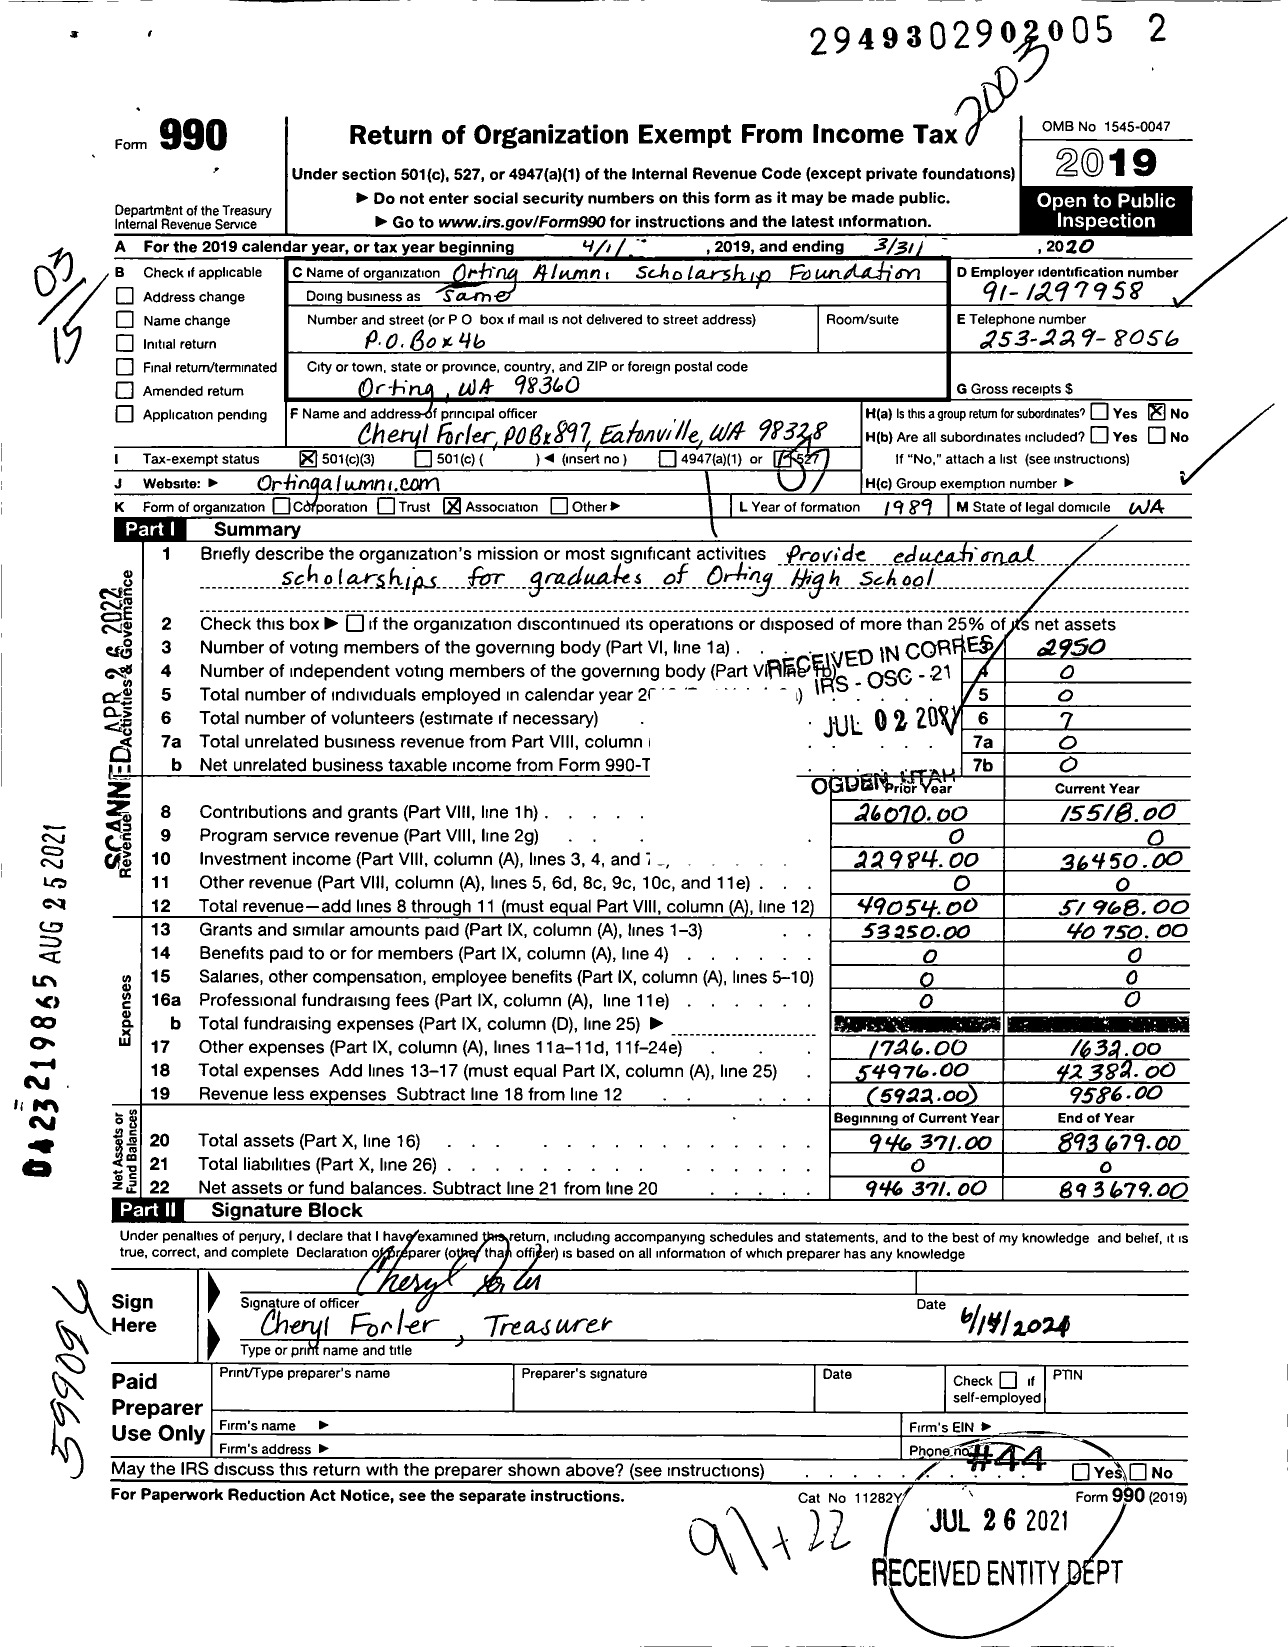 29493029020 05 2
2003
Form 990
Return of Organization Exempt From Income Tax
OMB No 1545-0047
2019
Under section 501(c), 527, or 4947(a)(1) of the Internal Revenue Code (except private foundations)
▶ Do not enter social security numbers on this form as it may be made public.
▶ Go to www.irs.gov/Form990 for instructions and the latest information.
Department of the Treasury
Internal Revenue Service
Open to Public
Inspection
A For the 2019 calendar year, or tax year beginning 4/1/ , 2019, and ending 3/31/ , 2020
B Check if applicable
Address change
Name change
Initial return
Final return/terminated
Amended return
Application pending
C Name of organization Orting Alumni Scholarship Foundation
Doing business as Same
Number and street (or P O box if mail is not delivered to street address) Room/suite
P.O. Box 46
City or town, state or province, country, and ZIP or foreign postal code
Orting, WA 98360
D Employer identification number
91-1297958
E Telephone number
253-229-8056
G Gross receipts $
F Name and address of principal officer
Cheryl Forler, PO Bx 897, Eatonville, WA 98328
H(a) Is this a group return for subordinates? Yes No
H(b) Are all subordinates included? Yes No
If "No," attach a list (see instructions)
H(c) Group exemption number ▶
I Tax-exempt status 501(c)(3) 501(c) ( ) ◀ (insert no) 4947(a)(1) or 527
J Website: ▶ Ortingalumni.com
K Form of organization Corporation Trust Association Other ▶ L Year of formation 1989 M State of legal domicile WA
03
15
07
Part I Summary
1 Briefly describe the organization's mission or most significant activities Provide educational
scholarships for graduates of Orting High School
2 Check this box ▶ if the organization discontinued its operations or disposed of more than 25% of its net assets
3 Number of voting members of the governing body (Part VI, line 1a) 3 2950
4 Number of independent voting members of the governing body (Part VI, line 1b) 4 0
5 Total number of individuals employed in calendar year 5 0
6 Total number of volunteers (estimate if necessary) 6 7
7a Total unrelated business revenue from Part VIII, column 7a 0
b Net unrelated business taxable income from Form 990-T 7b 0
RECEIVED IN CORRES
IRS - OSC - 21
JUL 02 2021
OGDEN, UTAH
Activities & Governance
SCANNED APR 26 2022
Prior Year Current Year
8 Contributions and grants (Part VIII, line 1h) 26070.00 15518.00
9 Program service revenue (Part VIII, line 2g) 0 0
10 Investment income (Part VIII, column (A), lines 3, 4, and 22984.00 36450.00
11 Other revenue (Part VIII, column (A), lines 5, 6d, 8c, 9c, 10c, and 11e) 0 0
12 Total revenue—add lines 8 through 11 (must equal Part VIII, column (A), line 12) 49054.00 51968.00
Revenue
13 Grants and similar amounts paid (Part IX, column (A), lines 1–3) 53250.00 40750.00
14 Benefits paid to or for members (Part IX, column (A), line 4) 0 0
15 Salaries, other compensation, employee benefits (Part IX, column (A), lines 5–10) 0 0
16a Professional fundraising fees (Part IX, column (A), line 11e) 0 0
b Total fundraising expenses (Part IX, column (D), line 25) ▶
17 Other expenses (Part IX, column (A), lines 11a–11d, 11f–24e) 1726.00 1632.00
18 Total expenses Add lines 13–17 (must equal Part IX, column (A), line 25) 54976.00 42382.00
19 Revenue less expenses Subtract line 18 from line 12 (5922.00) 9586.00
Expenses
Beginning of Current Year End of Year
20 Total assets (Part X, line 16) 946 371.00 893679.00
21 Total liabilities (Part X, line 26) 0 0
22 Net assets or fund balances. Subtract line 21 from line 20 946 371.00 893679.00
Net Assets or
Fund Balances
AUG 25 2021
Part II Signature Block
Under penalties of perjury, I declare that I have examined this return, including accompanying schedules and statements, and to the best of my knowledge and belief, it is
true, correct, and complete Declaration of preparer (other than officer) is based on all information of which preparer has any knowledge
Sign
Here
Cheryl Forler
Signature of officer Date
6/14/2021
Cheryl Forler, Treasurer
Type or print name and title
Paid
Preparer
Use Only
Print/Type preparer's name Preparer's signature Date Check if self-employed PTIN
Firm's name ▶ Firm's EIN ▶
Firm's address ▶ Phone no.
#44
May the IRS discuss this return with the preparer shown above? (see instructions) Yes No
For Paperwork Reduction Act Notice, see the separate instructions. Cat No 11282Y Form 990 (2019)
JUL 26 2021
RECEIVED ENTITY DEPT